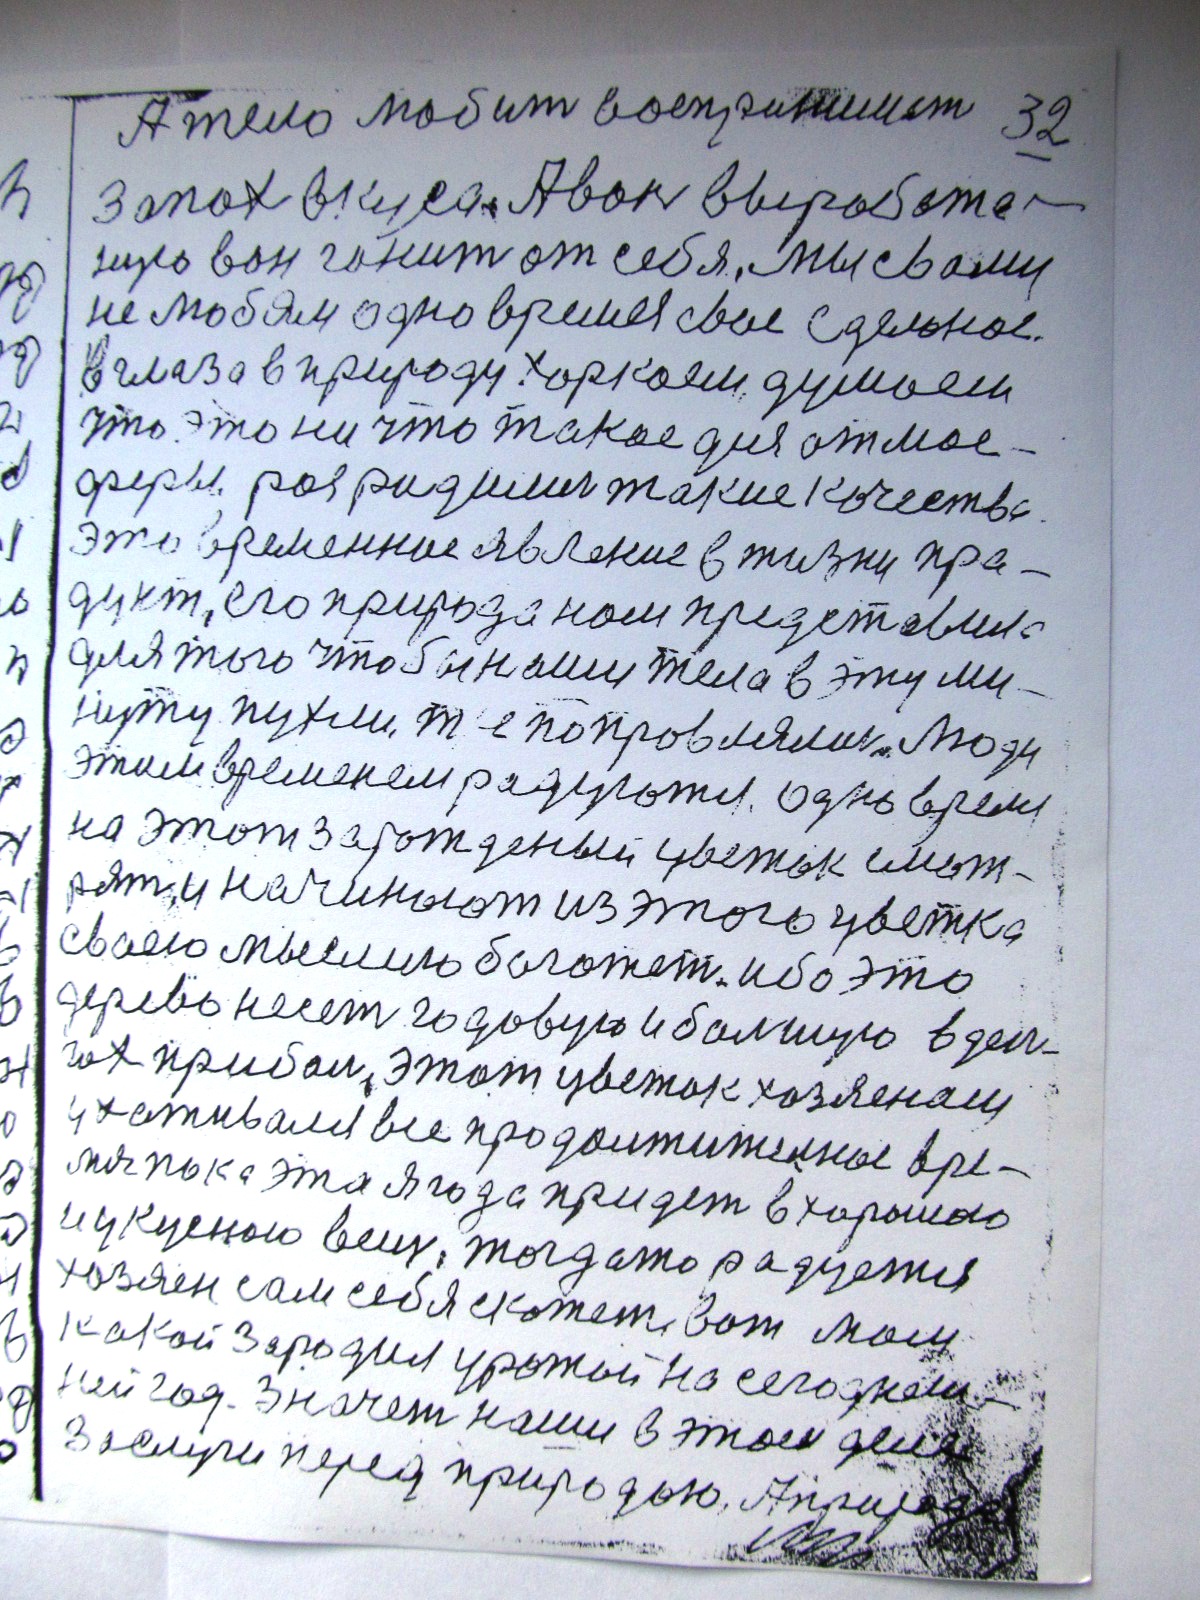 А тело любит воспринимат 32
запах вкуса. А вон выработа-
ную вон гонит от себя. Мы с вами
не любям одно время свое сделоное.
в глаза в природу харкаем, думаем
что это ни что такое для отмос-
феры, розрядили такие качества
это временное явление в жизни пра-
дукт, его природа нам представила
для того чтобы наши тела в эту ми-
нуту пухли, т е попровляли. Люди
этим временем радуются. одно время
на этот зарожденый цветок смот-
рят, и начинают из этого цветка
своею мыслию богатет. ибо это
дерево несет годовую и большую в ден-
гах прибол, этот цветок хозяенами
ухаживался все продолжителное вре-
мя пока эта ягода придет в хорошою
и укусною вещ, тогда то радуется
хозяен сам себя скажет, вот мол
какой зародил урожай на сегоднеш-
ней год. Значет наши в этом деле
заслуги перед природою. А природа